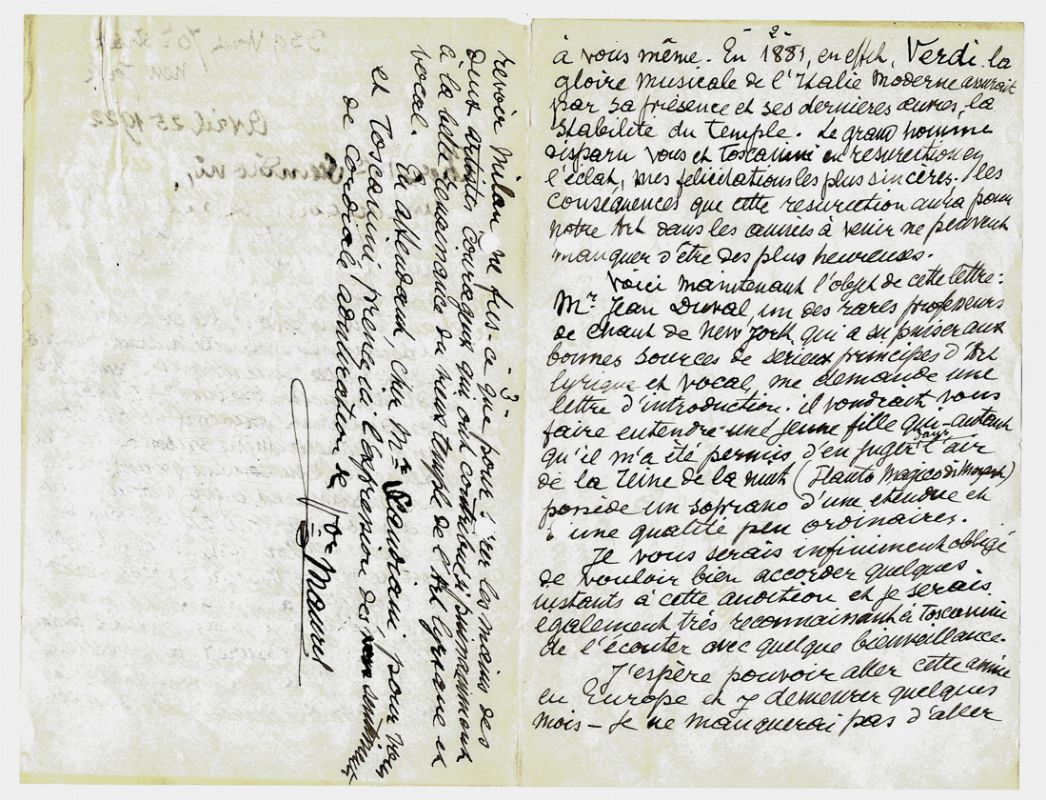 -2-
à vous même. En 1881, en effet, Verdi, la
gloire musicale de l'Italie Moderne assurait
par sa présence et ses dernières œuvres, la
stabilité du Temple. Le grand homme
disparu vous et Toscanini en resurection en
l'éclat, mes félicitations les plus sincères. Les
conséquences que cette resurection aura pour
notre Art dans les années à venir ne peuvent
manquer d'être des plus heureuses.
Voici maintenant l'objet de cette lettre:
Mr. Jean Duval, un des rares professeurs
de chant de New York qui a su puiser aux
bonnes sources de serieux principes d'Art
lyrique et vocal, me demande une
lettre d'introduction. il voudrait vous
faire entendre une jeune fille qui - autant
qu'il m'a été permis d'en juger dans l'air
de la Reine de la nuit (Flauto Magico di Mozart)
possède un soprano d'une etendue et
d'une qualité peu ordinaires.
Je vous serais infiniment obligé
de vouloir bien accorder quelques
instants à cette audition et je serais
egalement très reconnaissant à Toscanini
de l'écouter avec quelque bienveillance.
J'espère pouvoir aller cette année
en Europe et y demeurer quelques
mois - Je ne manquerai pas d'aller
-3-
revoir Milan ne fus-ce que pour serrer les mains des
deux artistes courageux qui ont contribué si puissamment
à la belle renaissance du vieux temple de l'Art lyrique et
vocal. En attendant, cher Mr. Scandiani, pour vous
et Toscanini, prenez ici l'expression des sentiments
de cordiale admiration de
Vor Maurel
Avril 25 1922